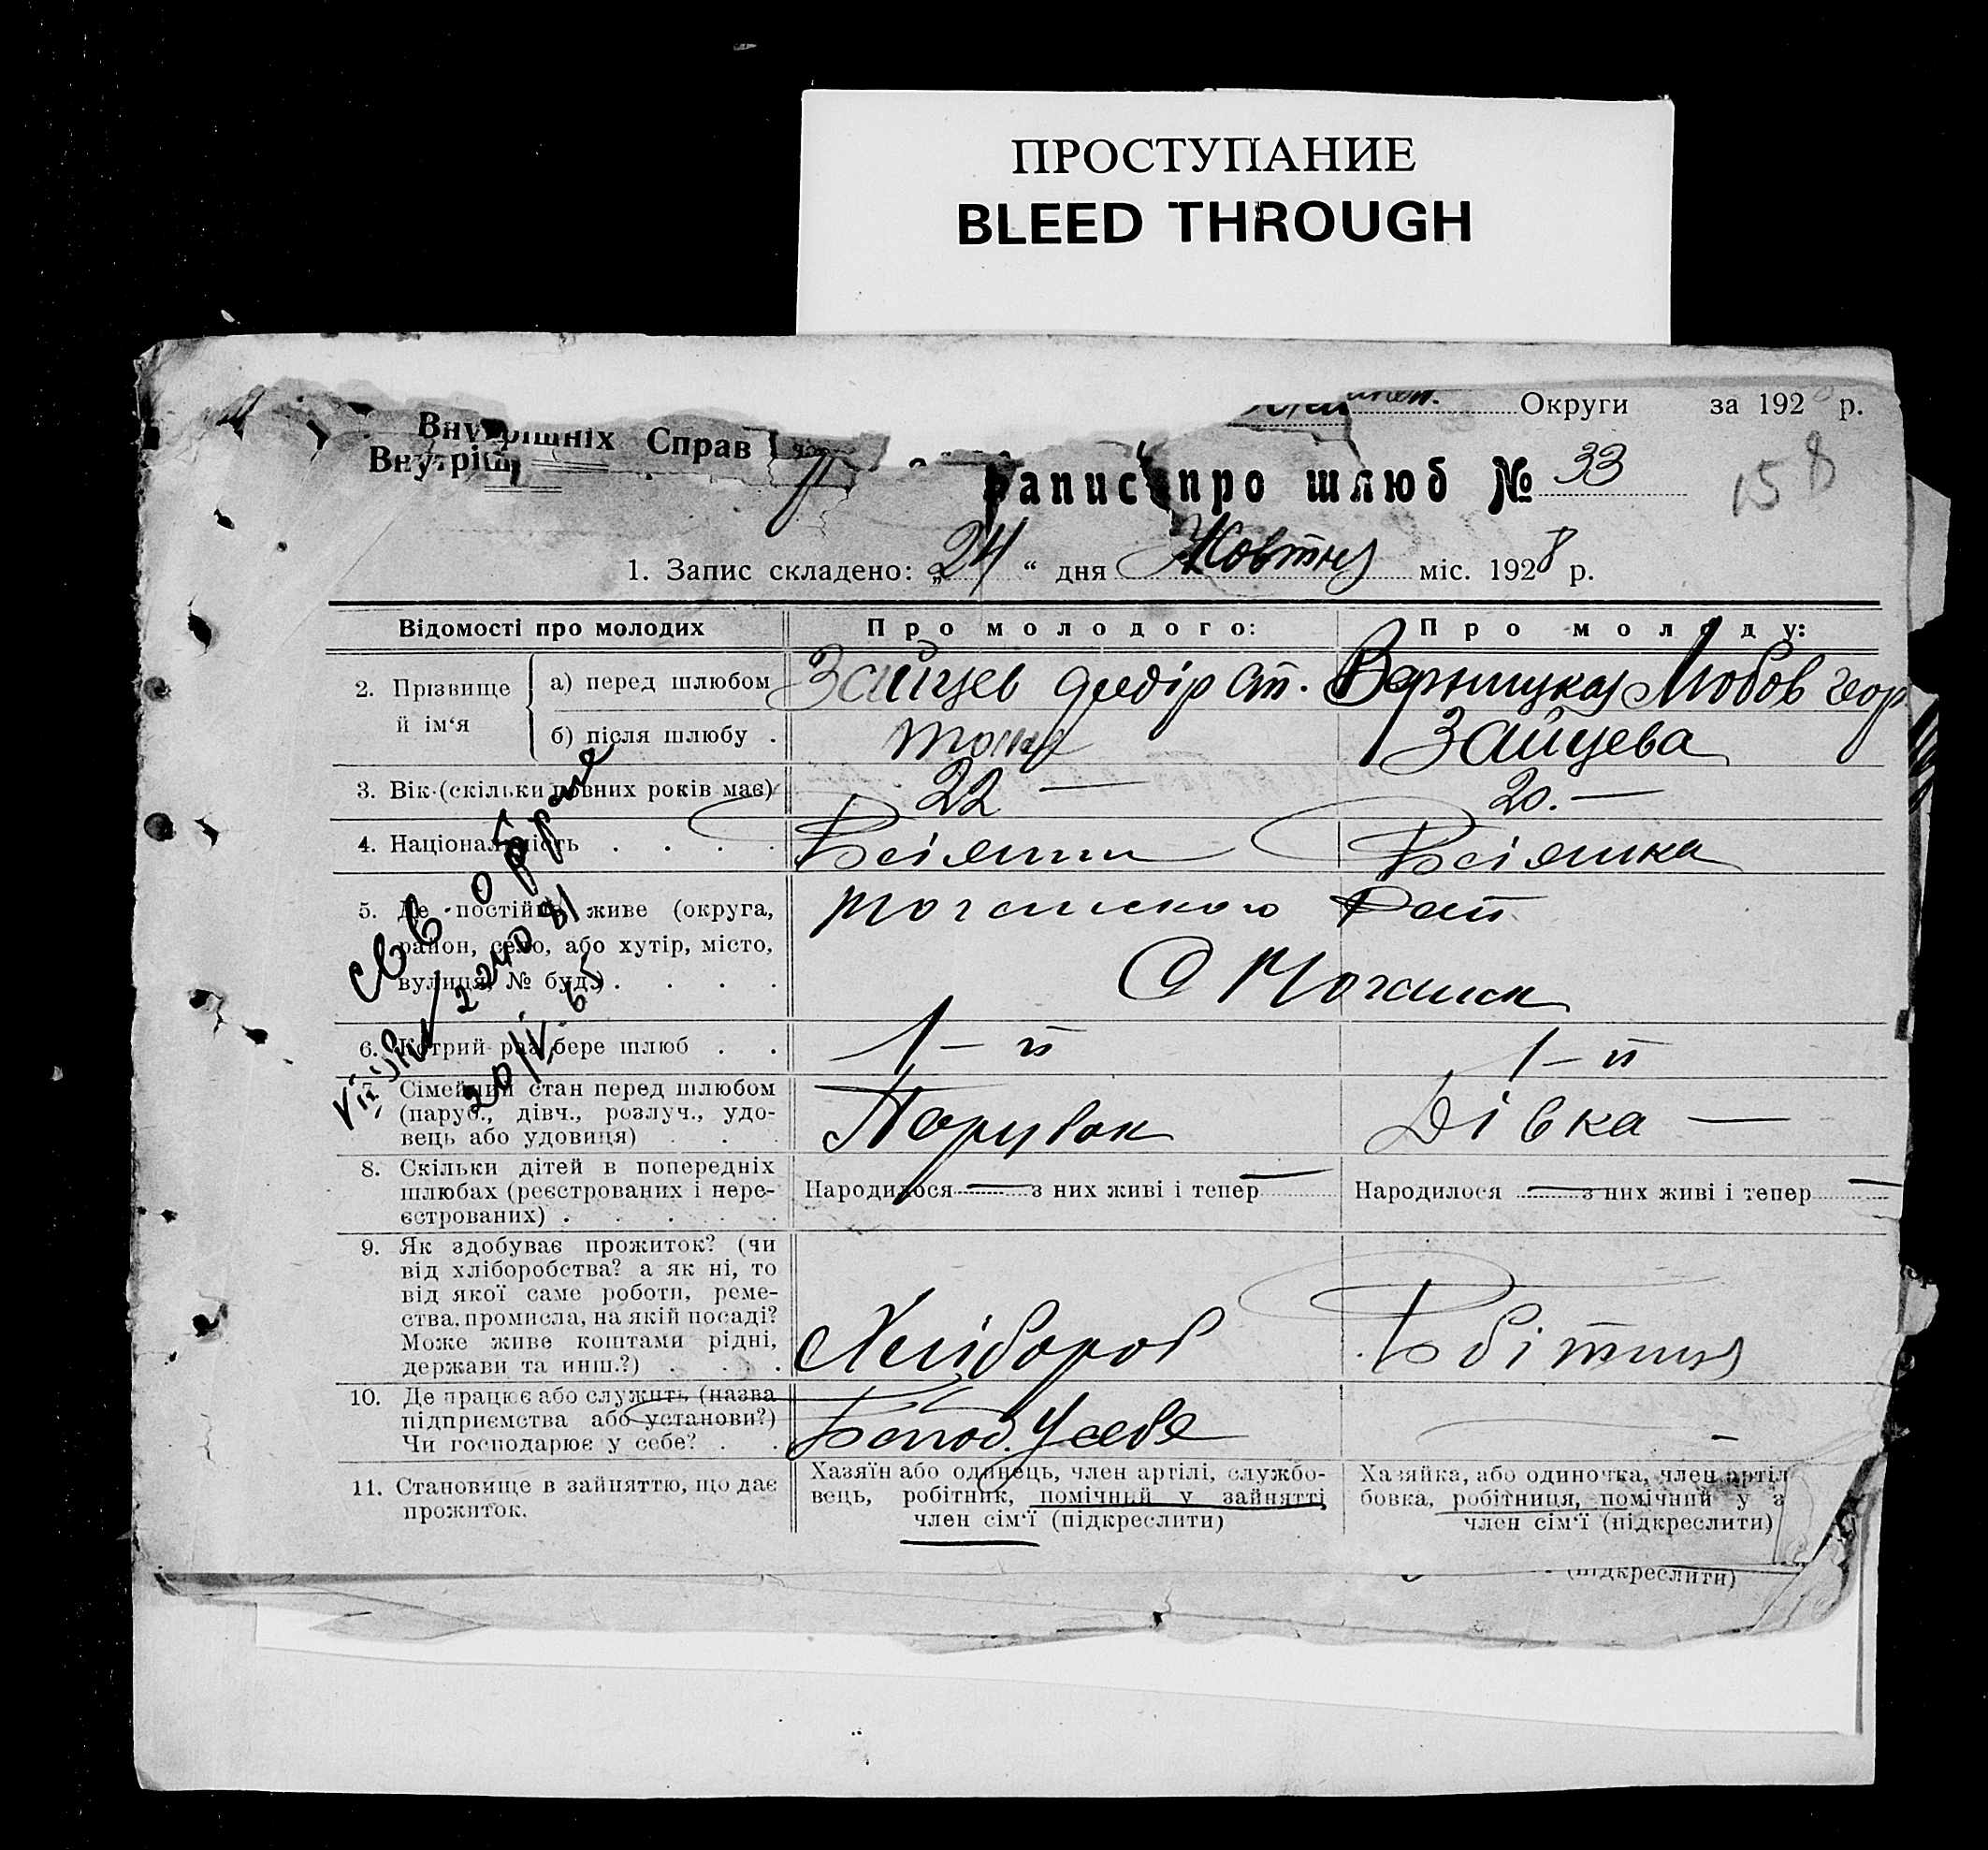 ПРОСТУПАНИЕ
BLEED THROUGH
Округи за 192 р.
Внутрішніх Справ
Внутріш
Запис про шлюб № 33
158
1. Запис складено: „24“ дня Жовтня міс. 1928 р.
Відомості про молодих
Про молодого:
Про молоду:
2. Прізвище й ім‘я
а) перед шлюбом
Зайцев Федір Ст.
Любов Геор
б) після шлюбу .
Зайцева
3. Вік (скільки повних років має)
22 —
20. —
4. Національність . . . .
Росіянин
Росіянка
5. Де постійно живе (округа,
район, село, або хутір, місто,
вулиця, № буд.) . . . .
6. Котрий раз бере шлюб . .
1-й
1-й
7. Сімейний стан перед шлюбом
(паруб., дівч., розлуч., удо-
вець або удовиця) . . .
Парубок
Дівка —
8. Скільки дітей в попередніх
шлюбах (реєстрованих і нере-
єстрованих) . . . . .
Народилося — з них живі і тепер —
Народилося — з них живі і тепер —
9. Як здобуває прожиток? (чи
від хліборобства? а як ні, то
від якої саме роботи, реме-
ства, промисла, на якій посаді?
Може живе коштами рідні,
держави та инш.?) . . . .
Хлібороб
10. Де працює або служить (назва
підприємства або установи?)
Чи господарює у себе? . .
у себе
–
11. Становище в зайняттю, що дає
прожиток.
Хазяїн або одинець, член артілі, службо-
вець, робітник, помічний у зайнятті
член сім‘ї (підкреслити)
Хазяйка, або одиночка, член артіл
бовка, робітниця, помічний у з
член сім‘ї (підкреслити)
(підкреслити)
20/IV 65